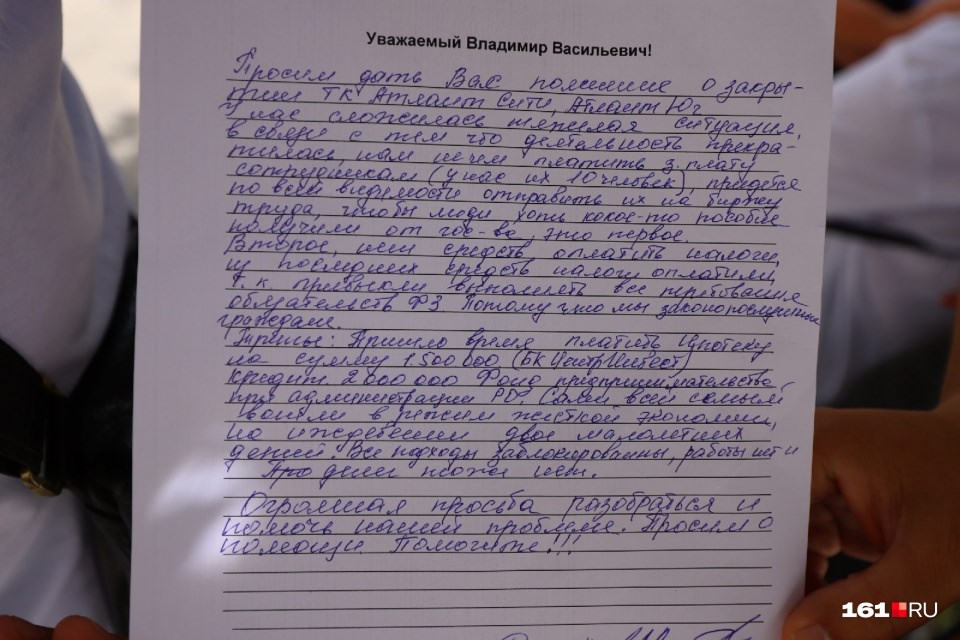 Уважаемый Владимир Васильевич!
Просим дать Вас пояснение о закры-
тии ТК Атлант Сити, Атлант Юг
У нас сложилась тяжелая ситуация,
в связи с тем что деятельность прекра-
тилась, нам нечем платить з.плату
сотрудникам (у нас их 10 человек), придется
по всей видимости отправить их на биржу
труда, чтобы люди хоть какое-то пособие
получили от гос-ва, это первое.
Второе, нет средств оплатить налоги,
из последних средств налоги оплатили,
т.к. привыкли выполнять все требования
обязательств ФЗ. Потому что мы законопослушные
граждане.
Третье: Пришло время платить Ипотеку
на сумму 1 500 000 (БК ЦентрИнвест)
кредит 2 000 000 Фонд предпринимательства
при администрации РО. Сами всей семьей
вошли в режим жесткой экономии,
на иждевении двое малолетних
детей. Все подходы заблокированны, работы нет и
продаж тоже нет.
Огромная просьба разобраться и
помочь нашей проблеме. Просим о
помощи Помогите!!!
161.RU